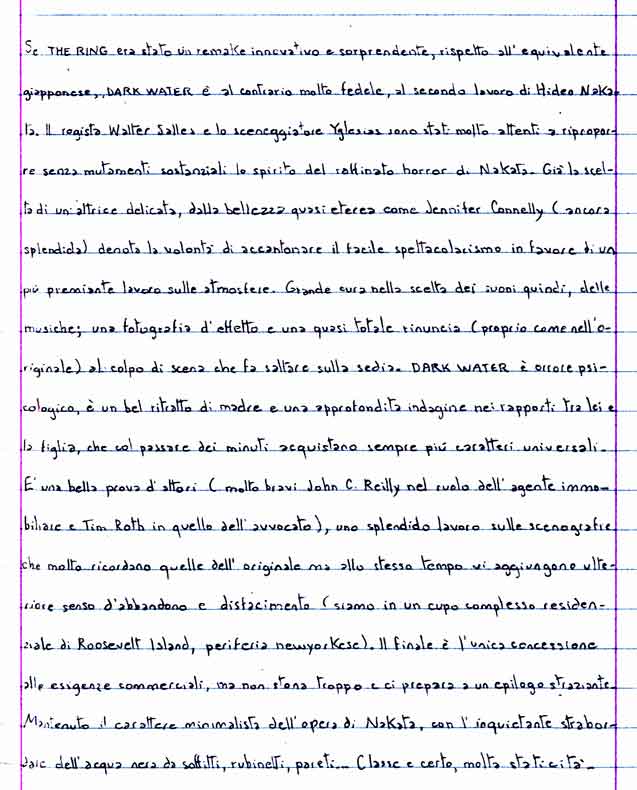 Se THE RING era stato un remake innovativo e sorprendente, rispetto all'equivalente
giapponese, DARK WATER è al contrario molto fedele, al secondo lavoro di Hideo Naka-
ta. Il regista Walter Salles e lo sceneggiatore Yglesias sono stati molto attenti a ripropor-
re senza mutamenti sostanziali lo spirito del raffinato horror di Nakata. Già la scel-
ta di un'attrice delicata, dalla bellezza quasi eterea come Jennifer Connelly (ancora
splendida) denota la volontà di accantonare il facile spettacolarismo in favore di un
più premiante lavoro sulle atmosfere. Grande cura nella scelta dei suoni quindi, delle
musiche; una fotografia d'effetto e una quasi totale rinuncia (proprio come nell'o-
riginale) al colpo di scena che fa saltare sulla sedia. DARK WATER è orrore psi-
cologico, è un bel ritratto di madre e una approfondita indagine nei rapporti tra lei e
la figlia, che col passare dei minuti acquistano sempre più caratteri universali.
E' una bella prova d'attori (molto bravi John C. Reilly nel ruolo dell'agente immo-
biliare e Tim Roth in quello dell'avvocato), uno splendido lavoro sulle scenografie
che molto ricordano quelle dell'originale ma allo stesso tempo vi aggiungono ulte-
riore senso d'abbandono e disfacimento (siamo in un cupo complesso residen-
ziale di Roosevelt Island, periferia newyorkese). Il finale è l'unica concessione
alle esigenze commerciali, ma non stona troppo e ci prepara a un epilogo straziante.
Mantenuto il carattere minimalista dell'opera di Nakata, con l'inquietante strabor-
dare dell'acqua nera da soffitti, rubinetti, pareti... Classe e certo, molta staticità.